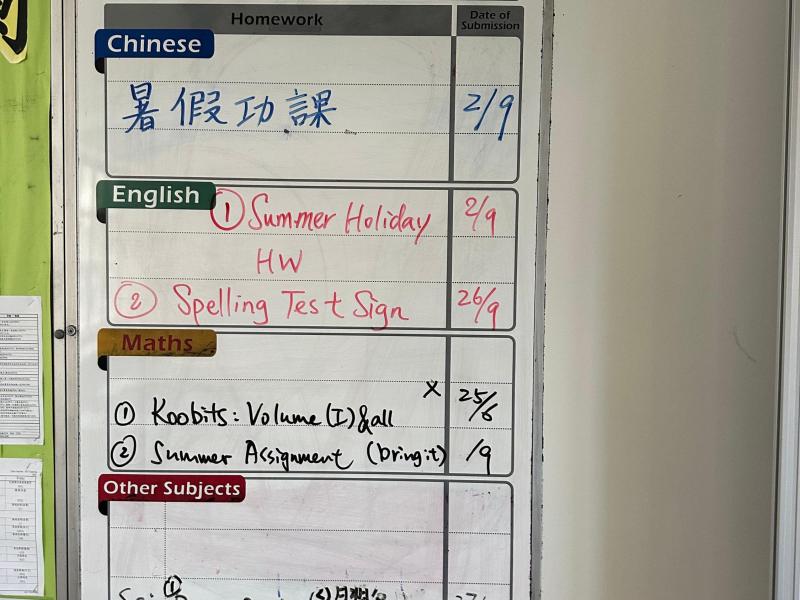 Homework Date of
Submission
Chinese
暑假功課 2/9
English
① Summer Holiday 2/9
HW
② Spelling Test Sign 26/9
Maths
① Koobits: Volume (I) & all x 25/6
② Summer Assignment (bring it) /9
Other Subjects